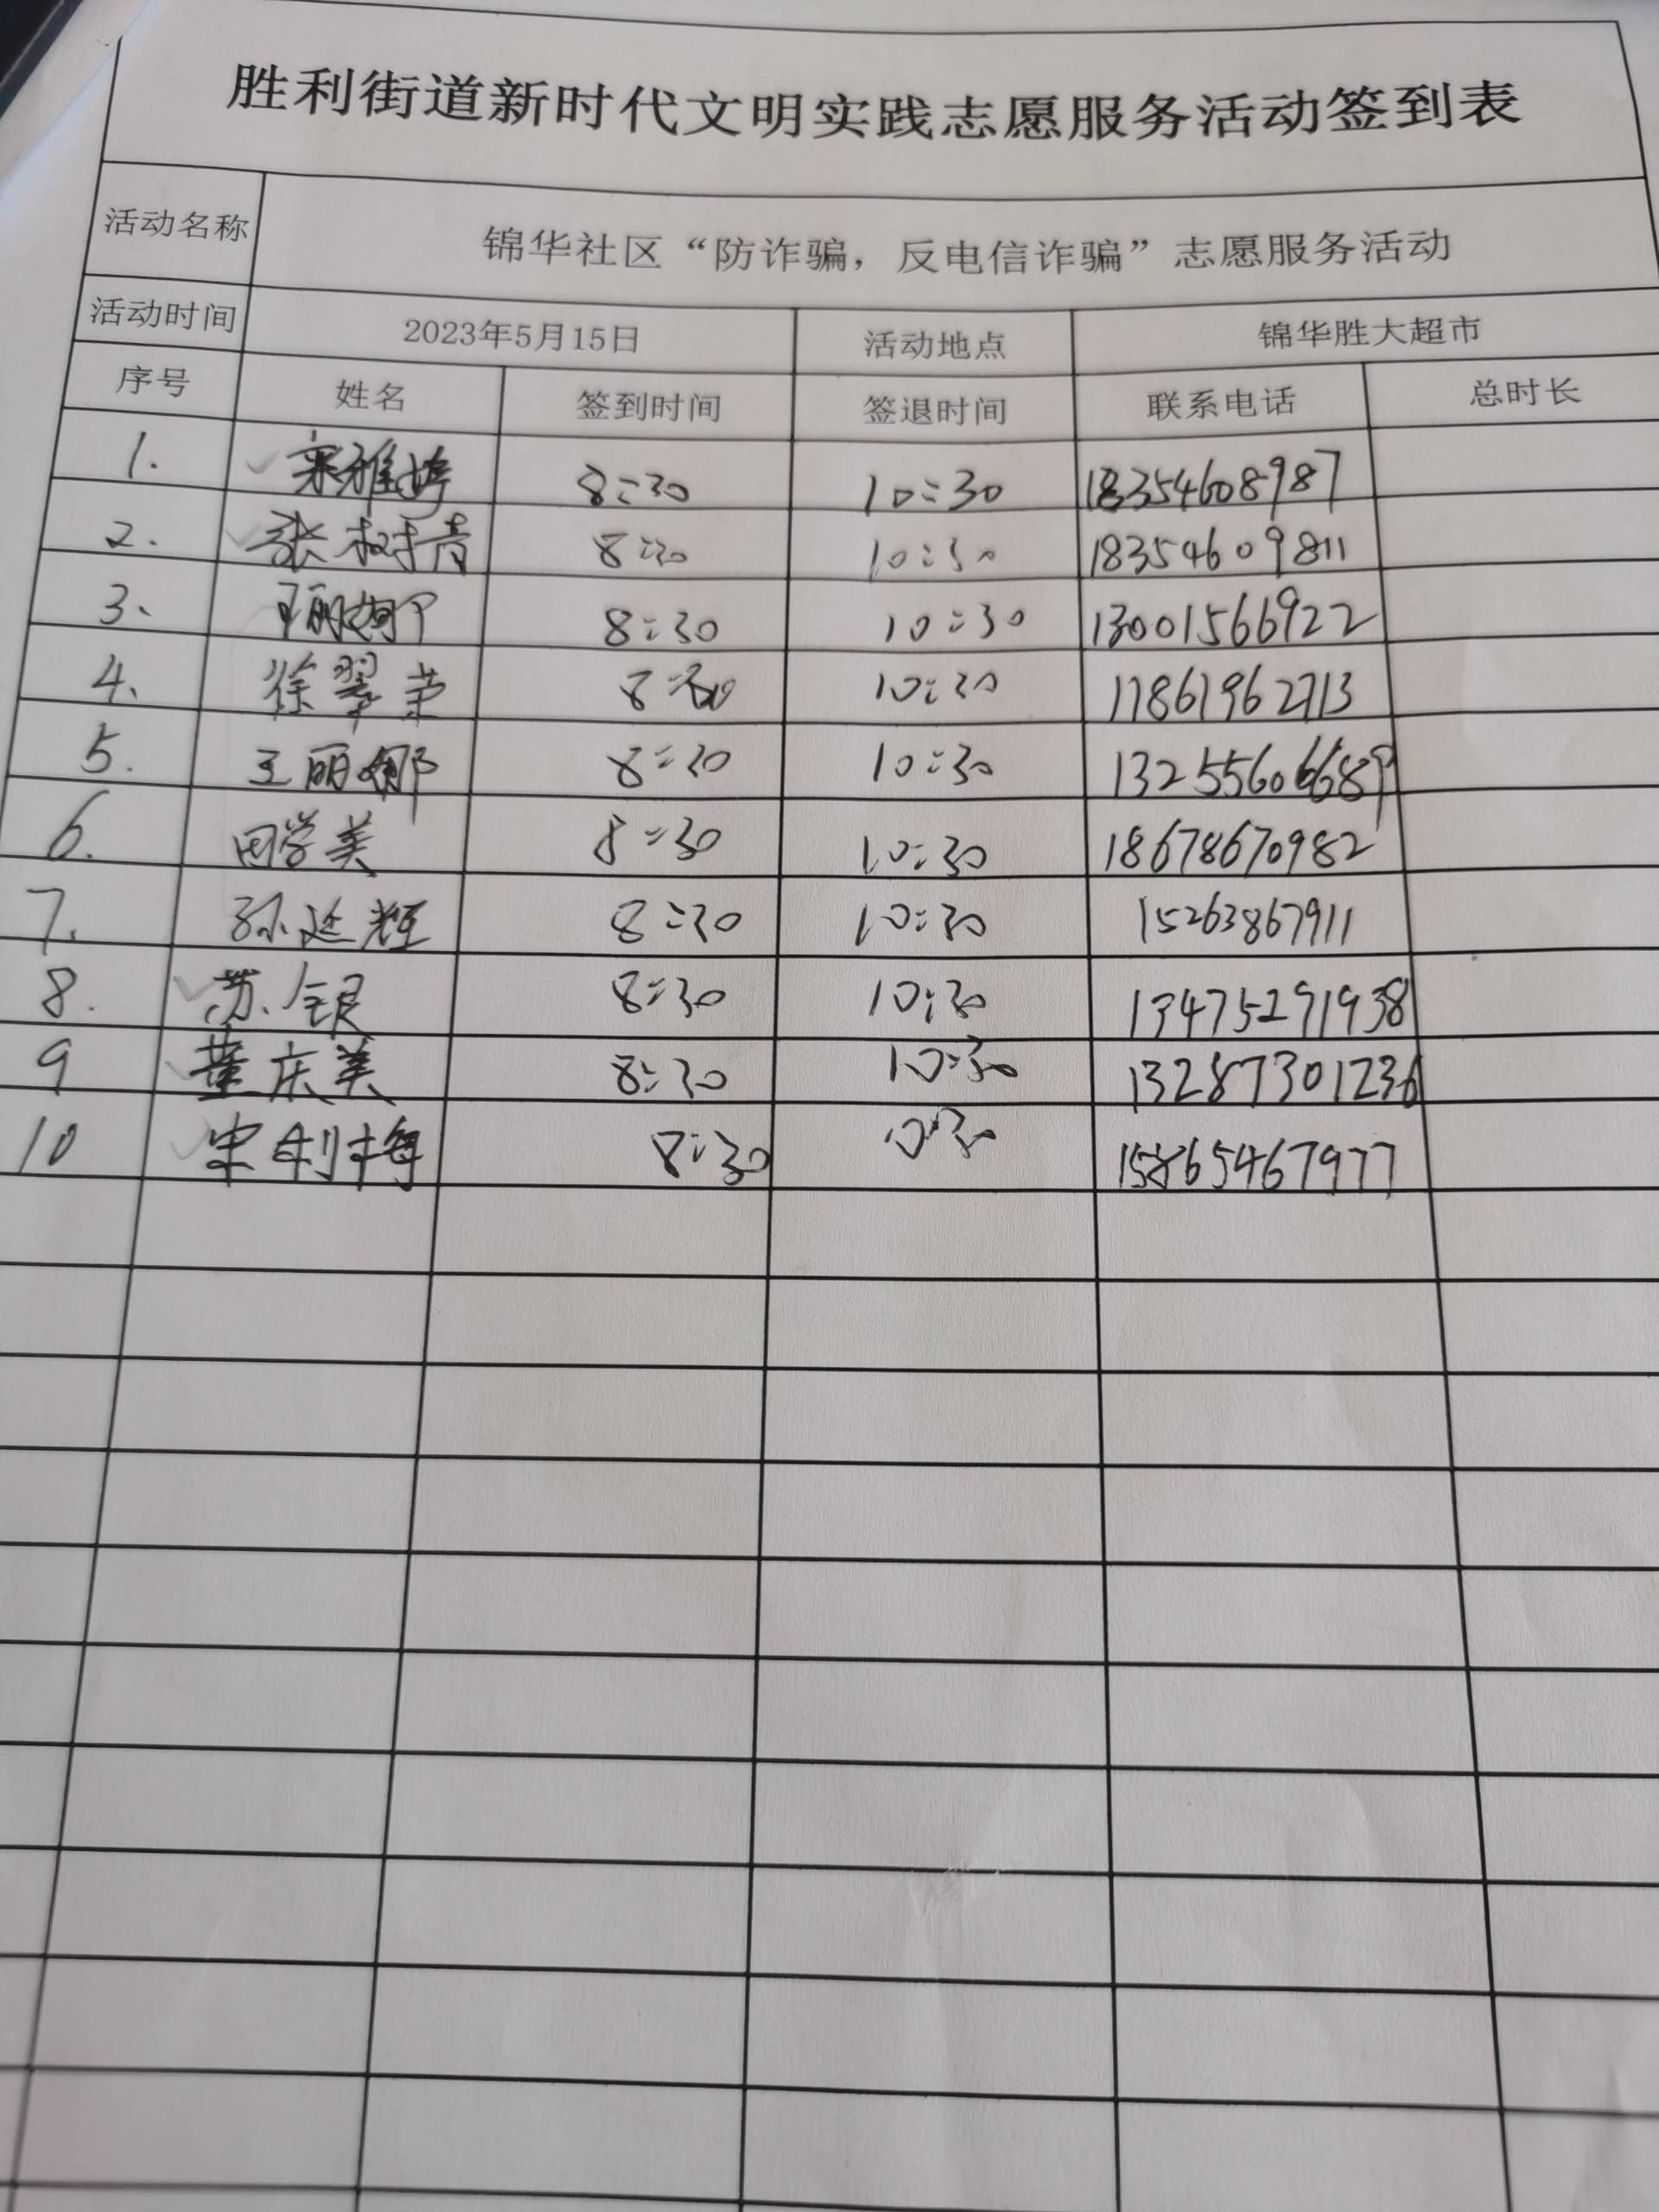 胜利街道新时代文明实践志愿服务活动签到表
活动名称 锦华社区“防诈骗，反电信诈骗”志愿服务活动
活动时间 2023年5月15日 活动地点 锦华胜大超市
序号 姓名 签到时间 签退时间 联系电话 总时长
1. 宋雅婷 8:30 10:30 18354608987
2. 张树青 8:30 10:30 18354609811
3、 8:30 10:30 13001566922
4、 徐翠荣 8:30 10:30 17861962713
5. 王丽娜 8:30 10:30
6. 田学美 8:30 10:30 18678670982
7. 孙廷辉 8:30 10:30 15263867911
8. 苏银 8:30 10:30 13475291938
9 董庆美 8:30 10:30 13287301236
10 宋利梅 8:30 10:30 15865467977